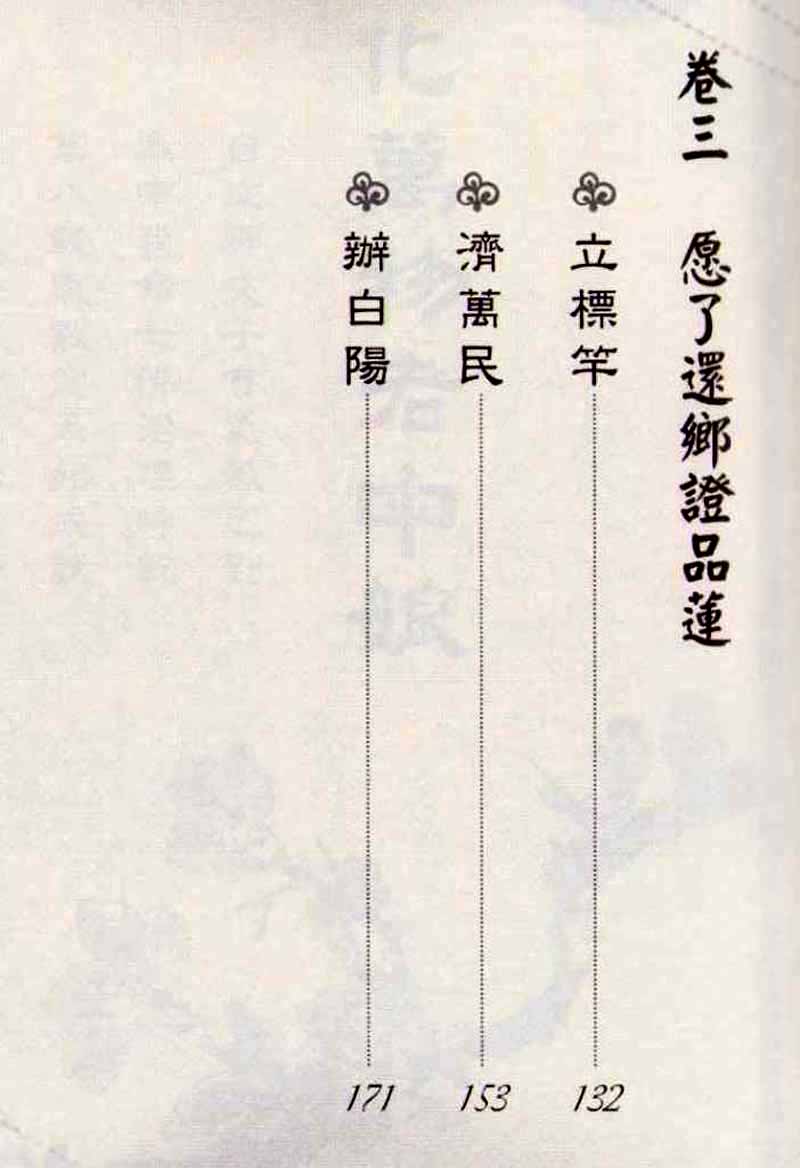 卷三　愿了還鄉證品蓮
立標竿 132
濟萬民 153
辦白陽 171